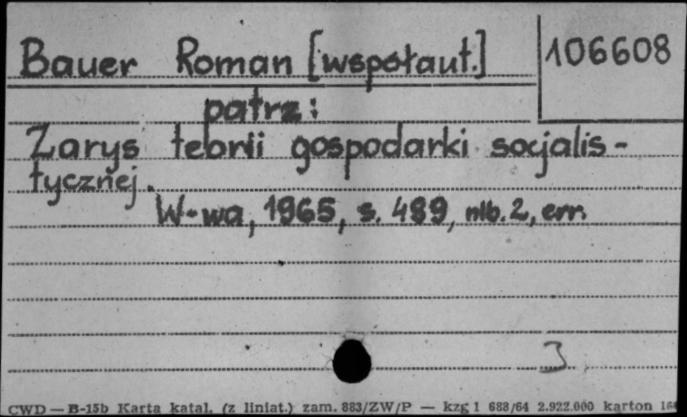 Bauer Roman [współaut.] 106608
patrz:
Zarys teorii gospodarki socjalis-
tycznej.
W-wa, 1965, s. 489, nlb. 2, err.
J
CWD — B-15b Karta katal. (z liniat.) zam. 883/ZW/P — kzg 1 688/64 2.922.000 karton